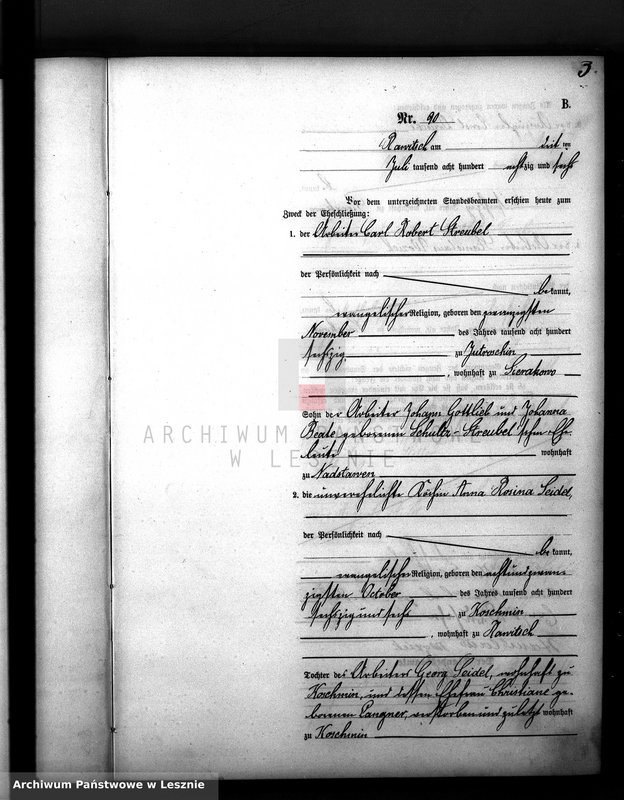 3.
B.
Nr. 90
Rawitsch am ten
Juli tausend acht hundert achtzig und sechs
Vor dem unterzeichneten Standesbeamten erschien heute zum
Zweck der Eheschließung:
1. der Arbeiter Carl Robert Streubel
der Persönlichkeit nach
be kannt,
evangelischer Religion, geboren den zwanzigsten
November des Jahres tausend acht hundert
sechszig zu Jutroschin
, wohnhaft zu Sierakowo
Sohn der Arbeiter Johann Gottlieb und Johanna
Beate geborenen Schultz-Streubel'schen Ehe-
leute wohnhaft
zu Nadstawen
2. die unverehelichte Köchin Anna Rosina Seidel,
der Persönlichkeit nach
be kannt,
evangelischer Religion, geboren den achtundzwan-
zigsten October des Jahres tausend acht hundert
sechszig und sechs zu Koschmin
, wohnhaft zu Rawitsch
Tochter des Arbeiters Georg Seidel, wohnhaft zu
Koschmin, und dessen Ehefrau Christiane ge-
borenen Langner, verstorben und zuletzt wohnhaft
zu Koschmin
ARCHIWUM PAŃSTWOWE
W LESZNIE
Archiwum Państwowe w Lesznie